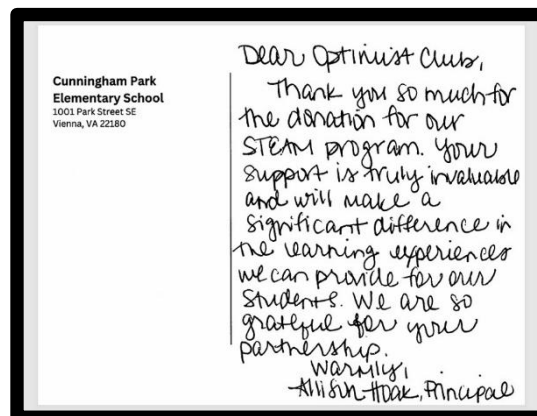 Cunningham Park
Elementary School
1001 Park Street SE
Vienna, VA 22180
Dear Optimist Club,
Thank you so much for
the donation for our
STEAM program. Your
support is truly invaluable
and will make a
significant difference in
the learning experiences
we can provide for our
students. We are so
grateful for your
partnership.
Warmly,
Allison Hoak, Principal